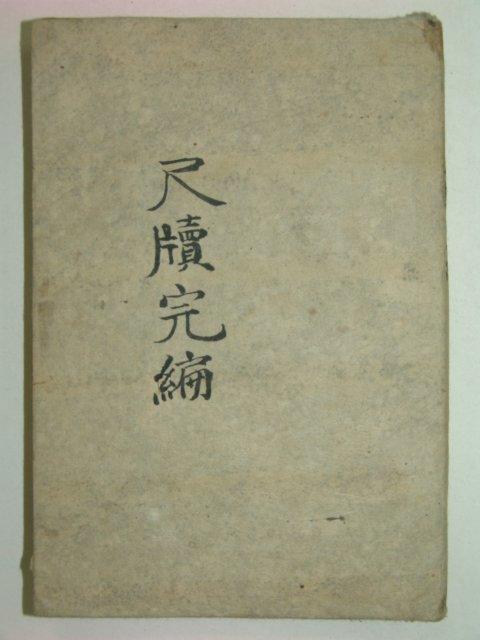 尺牘完編